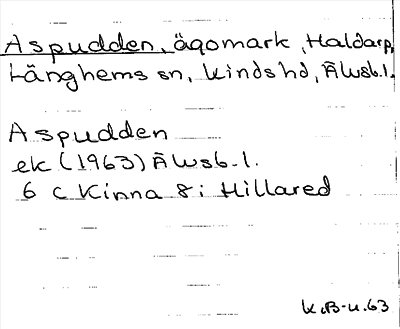 Aspudden, ägomark, Haldarp,
Länghems sn, Kinds hd, Älvsb.l.
Aspudden
ek (1963) Älvsb.l.
6 C Kinna 8i Hillared
K.B-u.63